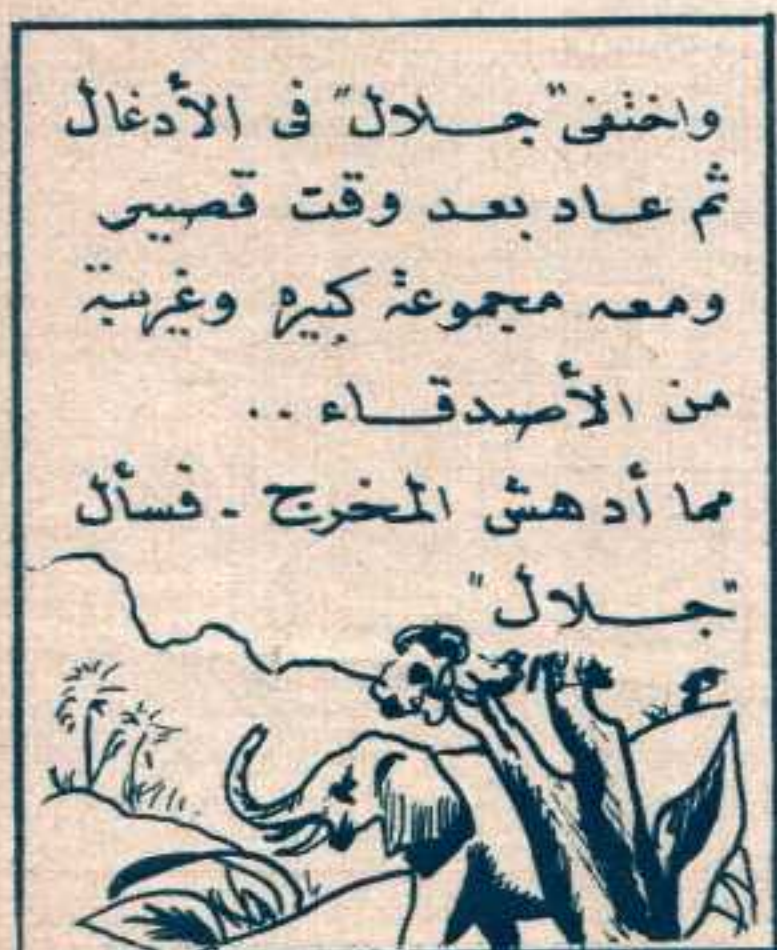 واختفى "جلال" فى الأدغال
ثم عاد بعد وقت قصير
ومعه مجموعة كبيره وغريبة
من الأصدقاء ..
مما أدهش المخرج - فسأل
"جلال"